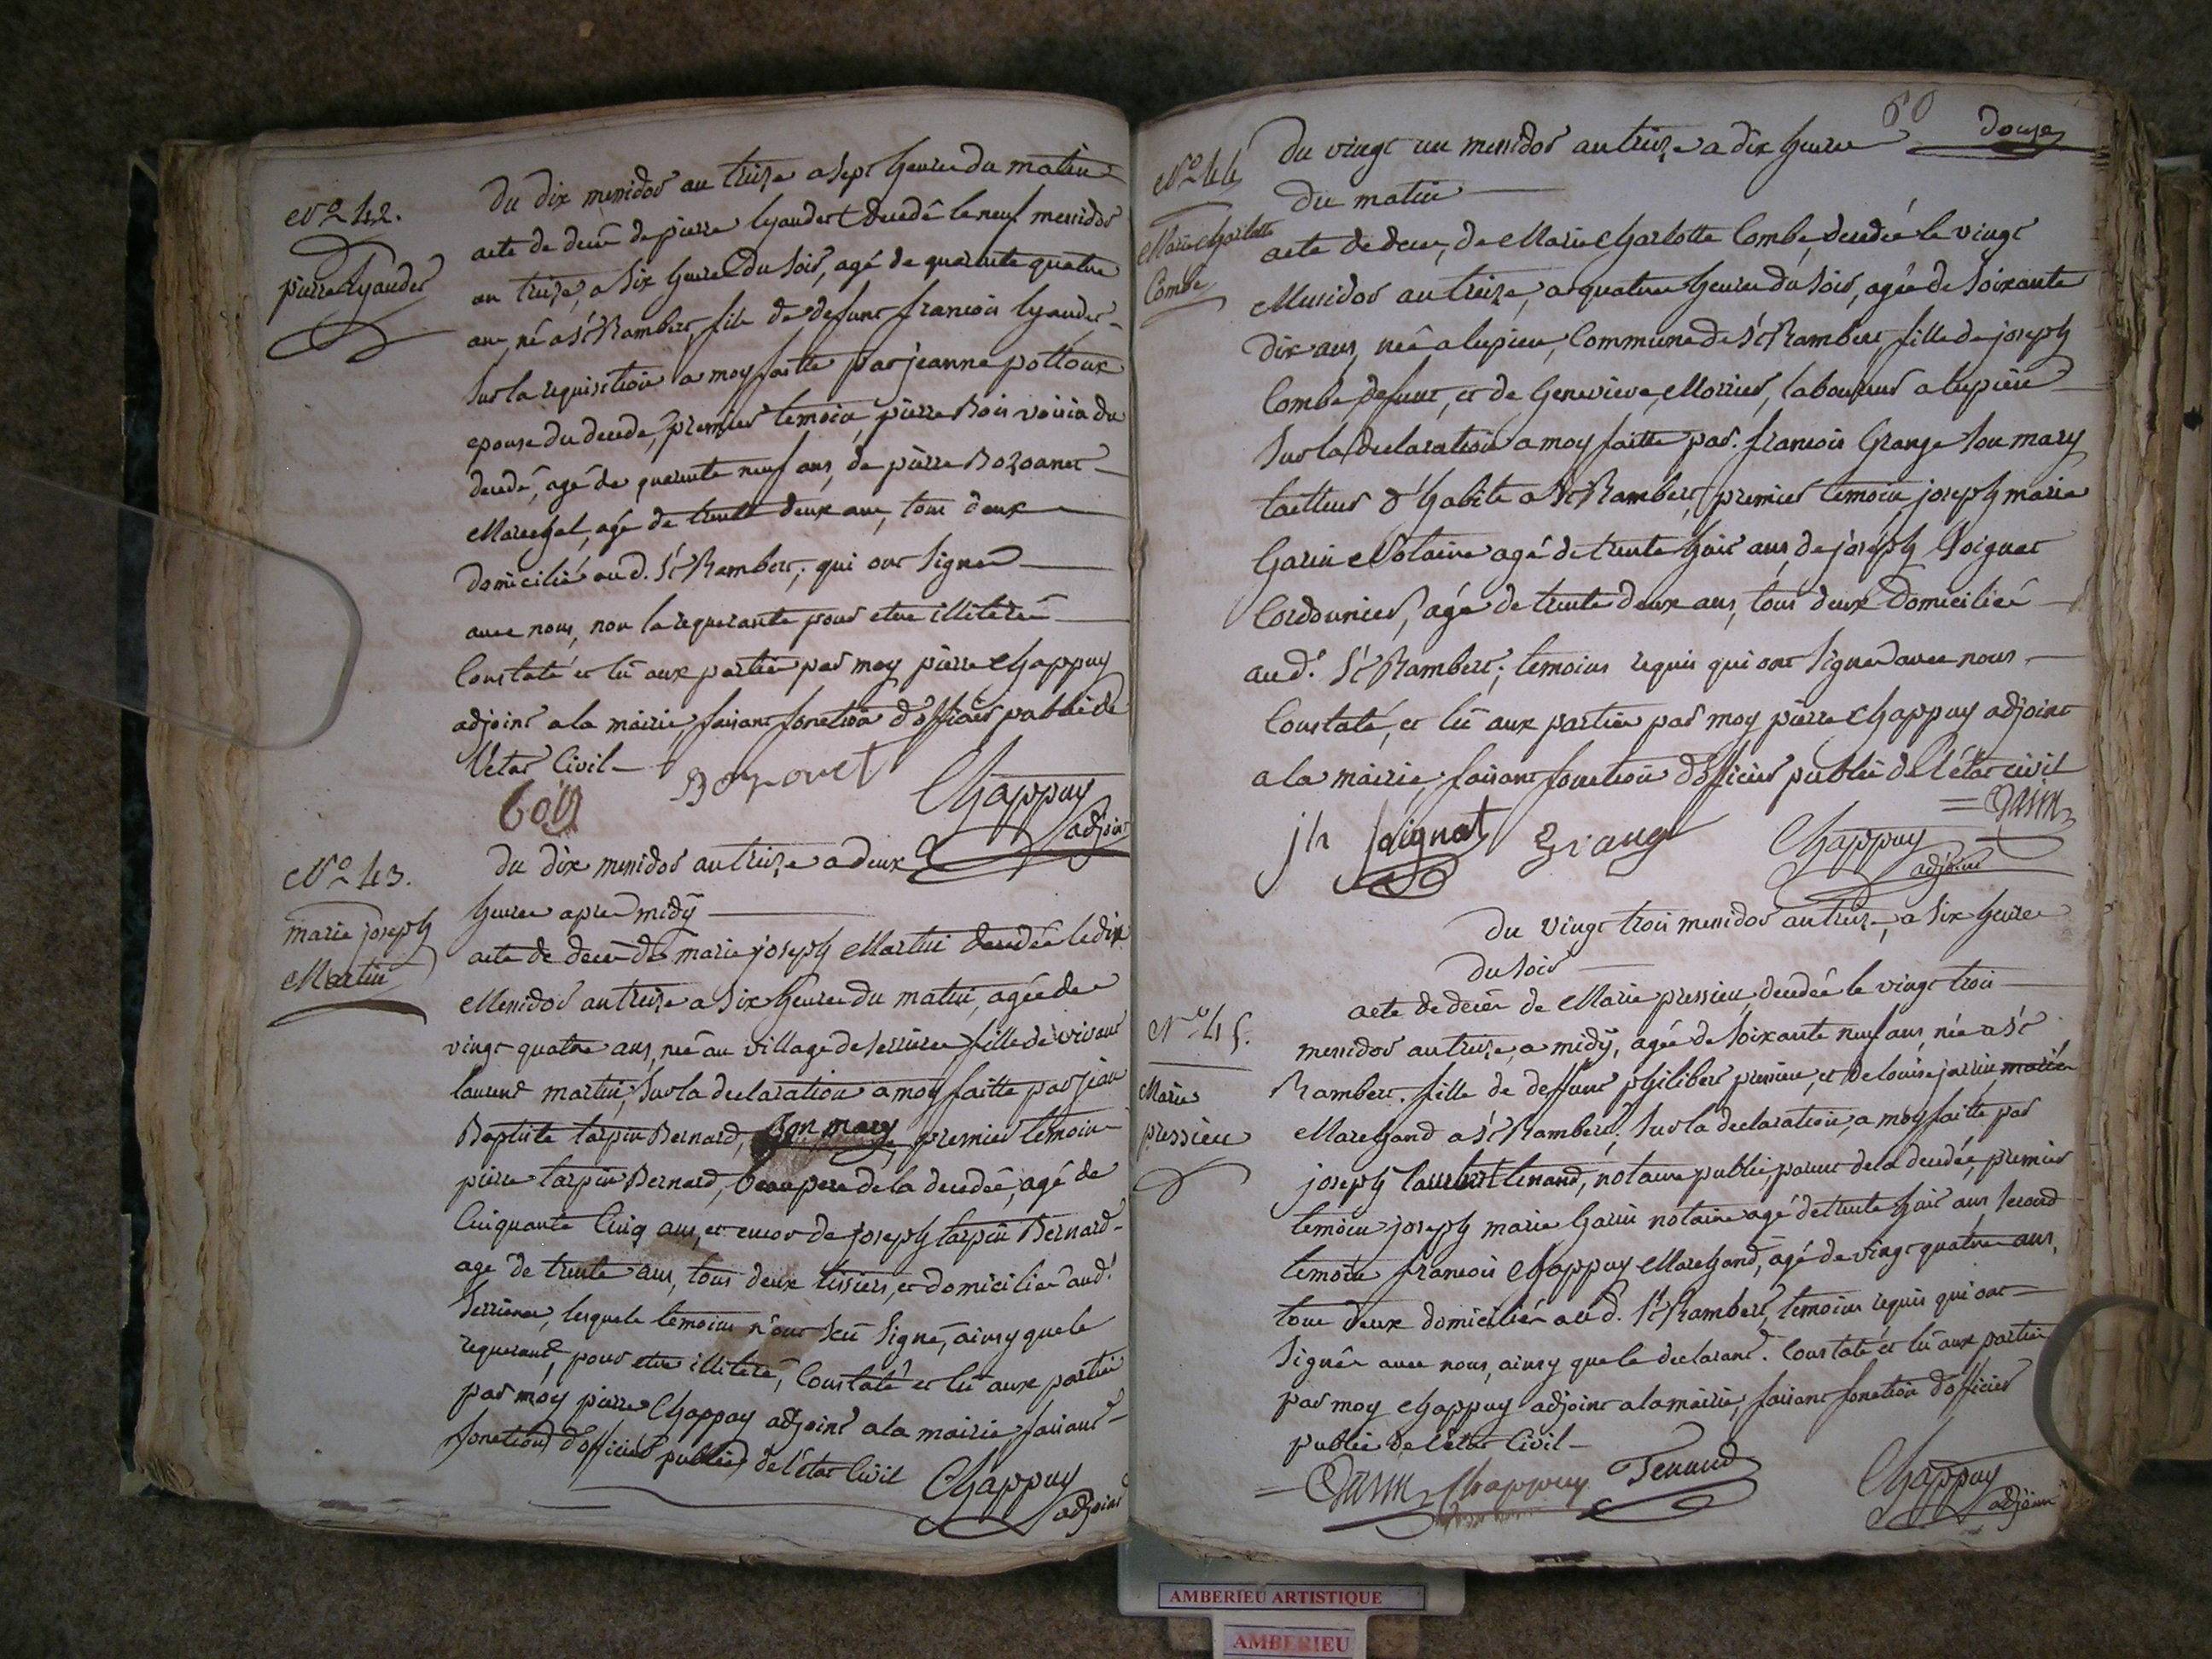 N° 42.
pierre lyaudet
Du dix messidor an treize a sept heures du matin
acte de decè de pierre lyaudet decedé le neuf messidor
an treize, a six heures du soir, agé de quarante quatre
ans, né a St Rambert, fils de defunt francois lyaudet
sur la requisition a moy faitte par jeanne pottoux
epouse du decedé, premier temoin, pierre Bois voisin du
decedé, agé de quarante neuf ans, de pierre Bozonet
Marechal, agé de trente deux ans, tous deux
domicilié aud. St Rambert; qui ont signé
avec nous, non la requerante pour etre illiteré
Constaté et lû aux parties par moy pierre Chappuy
adjoint a la mairie, faisant fonction d'officier public de
l'etat Civil
Bozonet
Bois
Chappuy
adjoint
N° 43.
marie joseph
Martin
Du dix messidor an treize a deux
heures apres midÿ
acte de decè de marie joseph Martin decedée le dix
Messidor an treize a six heures du matin, agée de
vingt quatre ans, neé au village de serriere fille de vivant
laurent martin, sur la declaration a moy faitte par jean
Baptiste tarpin Bernard, son mary, premier temoin
pierre tarpin Bernard, beau pere de la decedée, agé de
Cinquante Cinq ans, et encor de joseph tarpin Bernard
agé de trente ans, tous deux tissiers, et domicilié aud.
Serrieres, lesquels temoins n'ont scû signé, ainsy que le
requerant, pour etre illiteré, Constaté et lû aux parties
par moy pierre Chappuy adjoint a la mairie faisant
fonction d'officier public de l'état Civil
Chappuy
adjoint
60
douze
N° 44
Marie Charlotte
Combe
Du vingt un messidor an treize a dix heures
du matin
acte de decè, de Marie Charlotte Combe, decedée le vingt
Messidor an treize, a quatre heures du soir, agée de soixante
dix ans, neé a lupieu, Commune de St Rambert, fille de joseph
Combe defunt, et de Genevieve Morier, laboureur a lupieu
sur la declaration a moy faitte par. francois Grange son mary
tailleur d'habits a St Rambert, premier temoin joseph marie
Garin Notaire agé de trente huit ans, de joseph Soignat
Cordonnier, agé de trente deux ans, tous deux Domicilié
aud. St Rambert; temoins requis qui ont signé avec nous
Constaté, et lû aux parties par moy pierre Chappuy adjoint
a la mairie, faisant fonction d'officier public de l'état civil
Garin
jh Soignat
Grange
Chappuy
adjoint
Du vingt trois messidor an treize, a six heures
du soir
N° 45.
Marie
pressieu
acte de decès de Marie pressieu, decedée le vingt trois
messidor an treize, a midÿ, agée de soixante neuf ans, née a St
Rambert. fille de deffunt philibert pressieu, et de louise jarrin,
Marchand a St Rambert; sur la declaration, a moy faitte par
joseph tenand, notaire public, parent de la decedée, premier
temoin joseph marie Garin notaire agé de trente huit ans, second
temoin francois Chappuy Marchand, agé de vingt quatre ans,
tous deux domiciliés aud. St Rambert, temoins requis qui ont
signés avec nous, ainsy que le declarant. Constaté et lû aux parties
par moy Chappuy adjoint a la mairie, faisant fonction d'officier
public de l'état Civil
Garin
Chappuy
Tenand
Chappuy
adjoint
AMBERIEU ARTISTIQUE
AMBERIEU